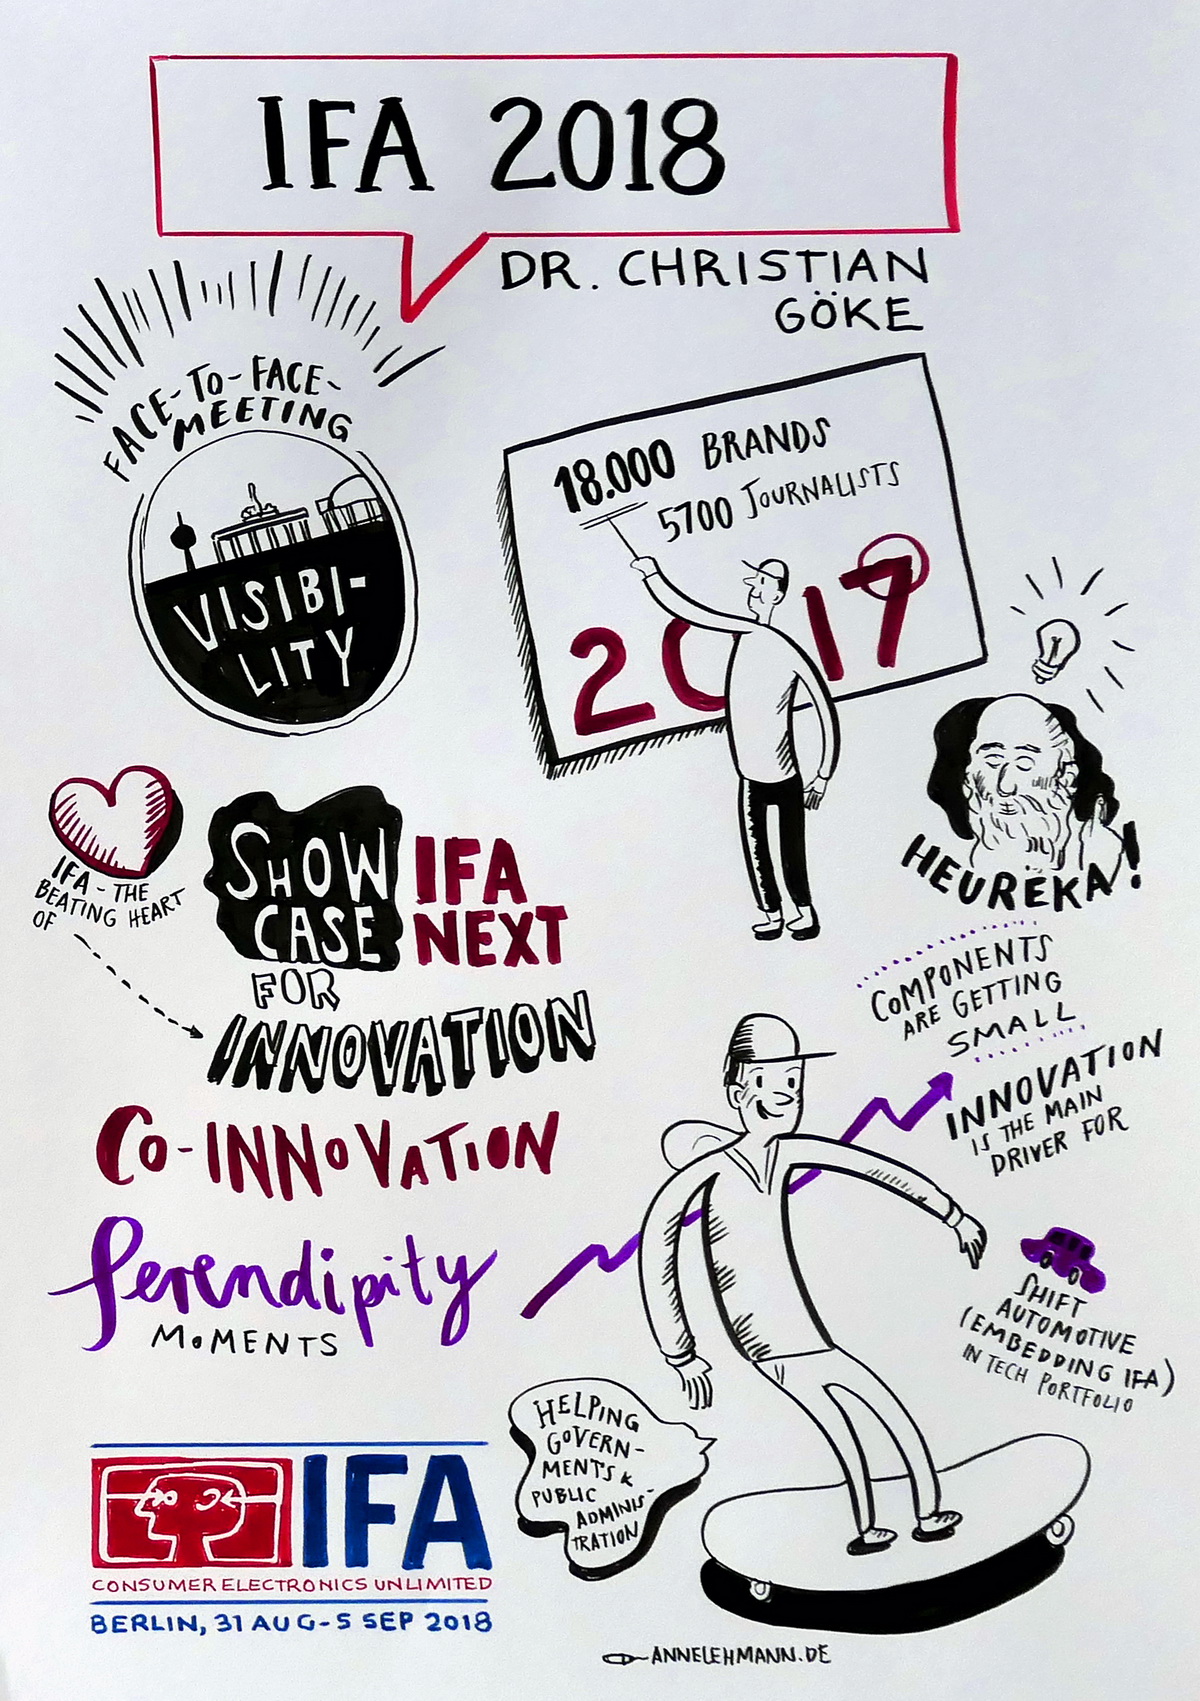 IFA 2018
DR. CHRISTIAN
GÖKE
FACE-TO-FACE-
MEETING
VISIBI-
LITY
18.000 BRANDS
5700 JOURNALISTS
2017
HEURËKA!
IFA - THE
BEATING HEART
OF
SHOW
CASE
IFA
NEXT
FOR
INNOVATION
CO-INNOVATION
Serendipity
MOMENTS
COMPONENTS
ARE GETTING
SMALL
INNOVATION
IS THE MAIN
DRIVER FOR
SHIFT
AUTOMOTIVE
(EMBEDDING IFA)
IN TECH PORTFOLIO
HELPING
GOVERN-
MENTS &
PUBLIC
ADMINIS-
TRATION
IFA
CONSUMER ELECTRONICS UNLIMITED
BERLIN, 31 AUG-5 SEP 2018
ANNELEHMANN.DE